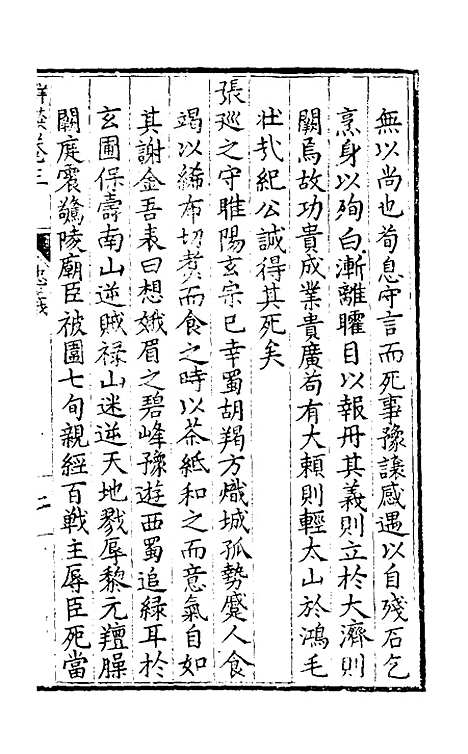 無以尚也荀息守言而死事豫讓感遇以自殘石乞
烹身以殉白漸離矐目以報丹其義則立於大濟則
闕焉故功貴成業貴廣苟有大賴則輕太山於鴻毛
壯哉紀公誠得其死矣
張巡之守睢陽玄宗已幸蜀胡羯方熾城孤勢蹙人食
竭以絺布切煑而食之時以茶紙和之而意氣自如
其謝金吾表曰想娥眉之碧峰豫遊西蜀追綠耳於
玄圃保壽南山逆賊祿山迷逆天地戮辱黎元羶臊
闕庭震驚陵廟臣被圍七旬親經百戰主辱臣死當
卷三
二